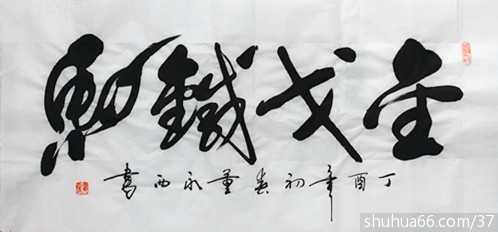 金戈鐵馬
丁酉年初春董永西書
shuhua66.com/37